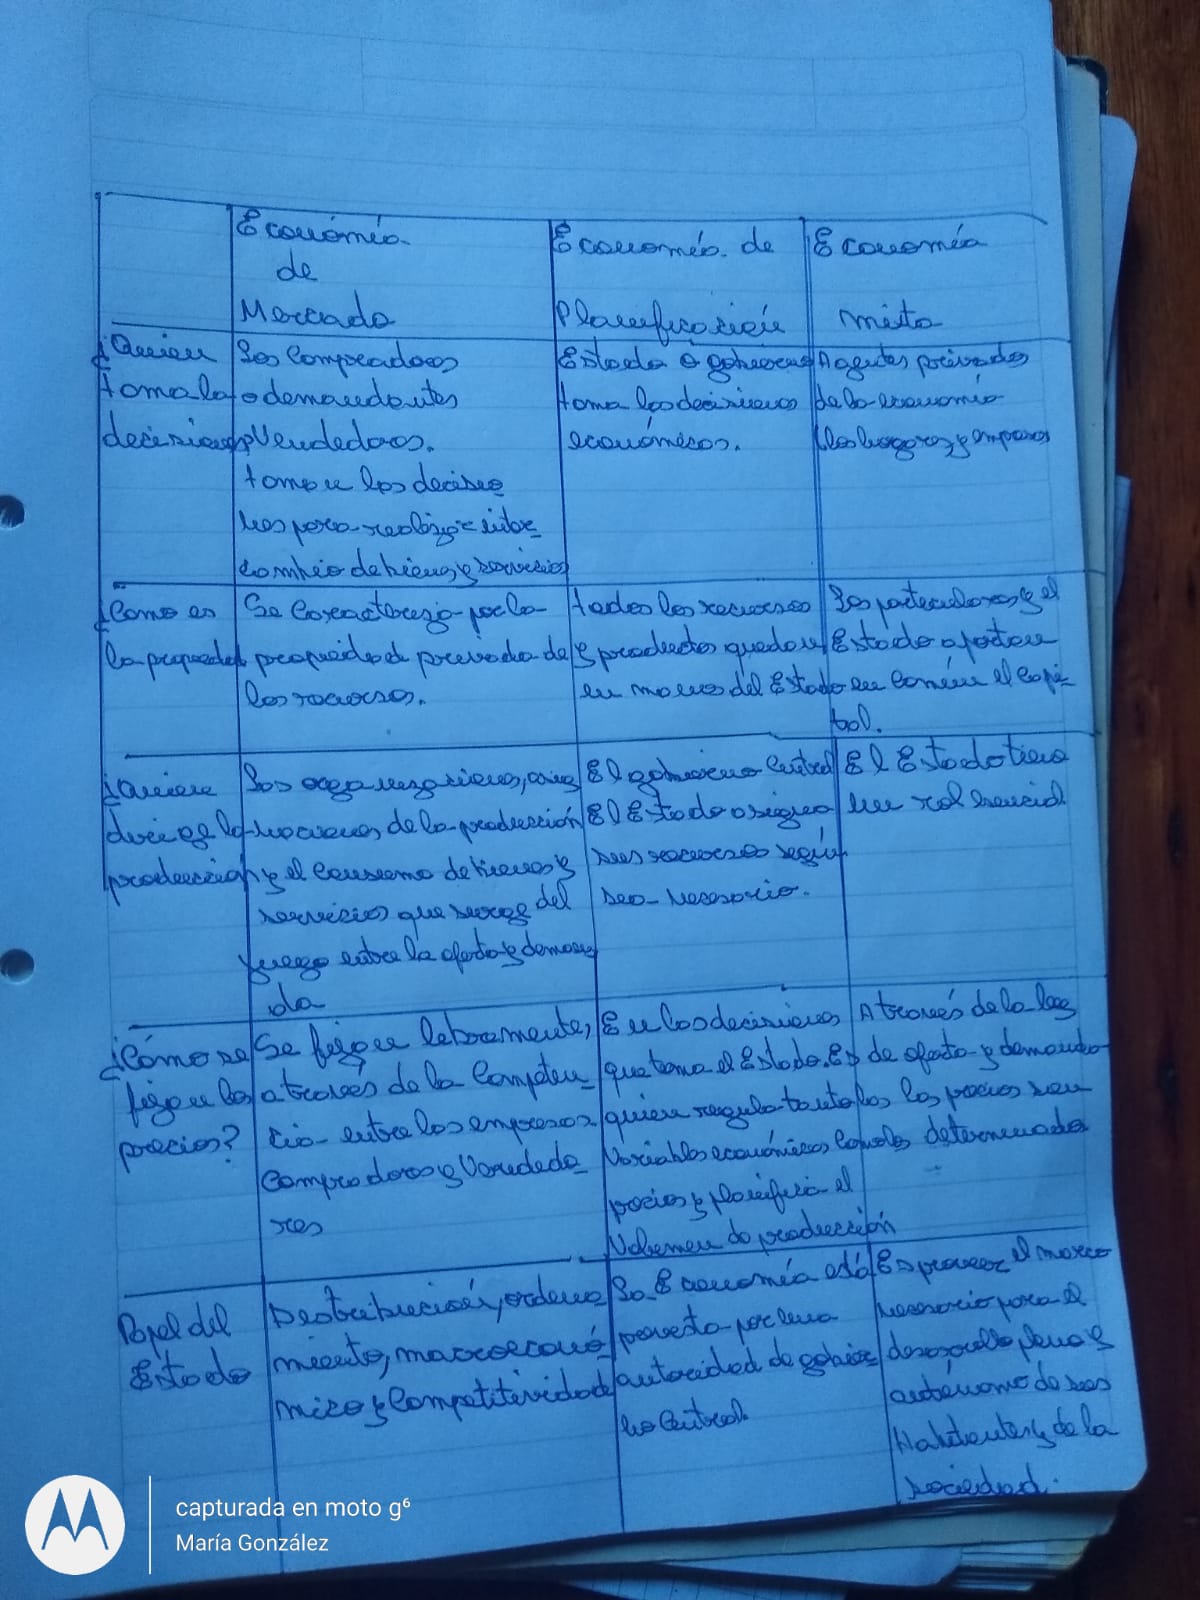 Económia
de
Mercado
Económia de
Planificación
Economía
mixta
¿Quien
toma la
decisiones
Los Compradores
o demandantes
y Vendedores.
toman las decisio
nes para realizar inter
cambio de bienes y servicios
Estado o gobierno
toma las decisiones
económicas.
Agentes privados
de la economía
(los hogares y empresas
¿Como es
la propiedad
Se Caracteriza por la
propiedad privada de
los recursos.
todos los recursos
y productos quedan
en manos del Estado
Los particulares y el
Estado aportan
en Común el Capi-
tal.
¿Quien
dirige la
producción
Las organizaciones,
de la producción
y el Consumo de bienes y
servicios que surge del
juego entre la oferta y deman
da
El gobierno Central
El Estado asigna
sus recursos según
sea necesario.
El Estado tiene
un rol esencial
¿Cómo se
fijan los
precios?
Se fijan libremente,
a través de la Competen
cia entre las empresas
Compradores y Vendedo
res
En las decisiones
que toma el Estado. Es
quien regula tanto las
Variables económicas como los
precios y planifica el
Volumen de producción
A través de la ley
de oferta y demanda
los precios son
determinados
Papel del
Estado
Distribución, ordena
miento, macroeconó
mico y Competitividad
La Economía está
provista por una
autoridad de gobier
no Central.
Es proveer el marco
necesario para el
desarrollo pleno y
autónomo de sus
Habitantes y de la
sociedad.
capturada en moto g⁶
María González